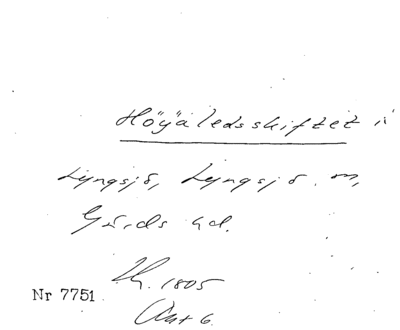 Höjaledsskiftet i
Lyngsjö, Lyngsjö sn,
Gärds hd.
1805
Nr 7751
Akt 6